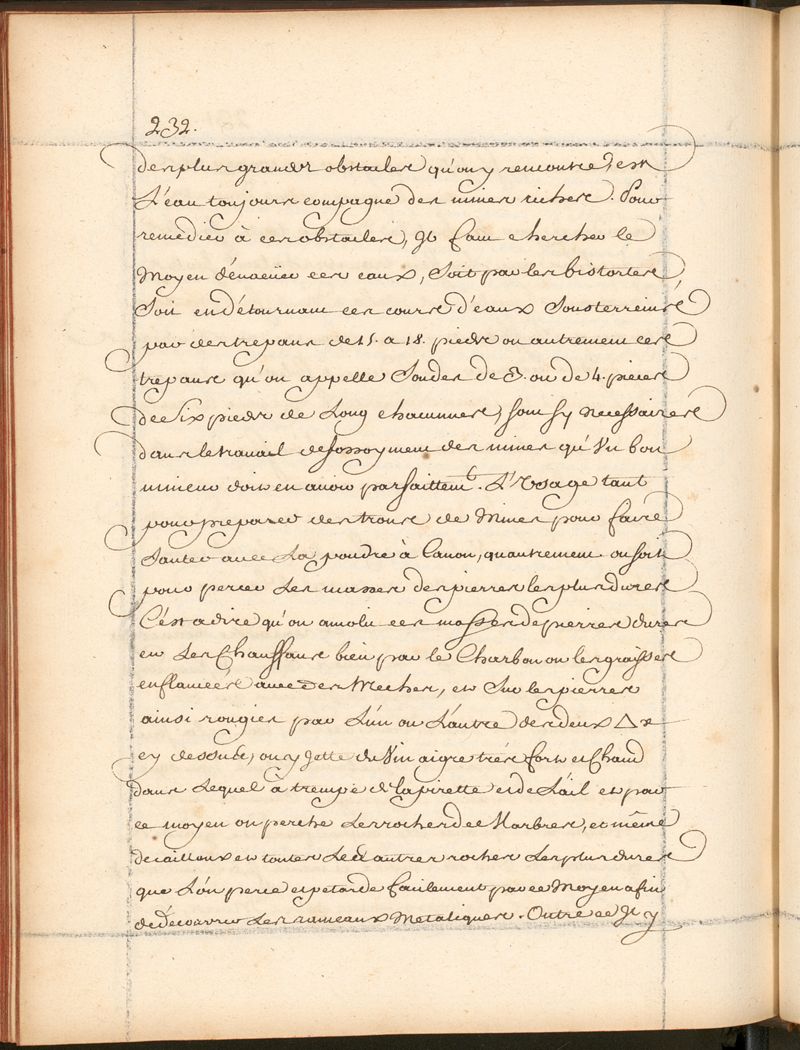 232.
des plus grands obstacles qu'on y rencontre, est
L'eau toujours compagne des mines riches. Pour
remedier à ces obstacles, Il faut chercher le
Moyen d'évacuer ces eaux, Soit par les bistortes
Soit en détournant ces cours d'eaux Sousterreins
par des trepans de 15. a 18. pieds ou autrement ces
trepans qu'on appelle Sondes de 3. ou de 4. pieces
de Six pieds de Long chacunnes, sont sy necessaires
dans le travail des mines qu'Vn bon
mineur doit en avoir parfaittemt. L'Vsage tant
pour preparer des trous de Mines pour faire
Sauter avec La poudre à Canon, qu'autrement ou soit
pour percer Les masses des pierres les plus dures
C'est a dire qu'on amolit ces masses de pierres dures
en Les Chauffans bien par le Charbon ou les graisses
enflamées avec des Meches, et Sur les pierres
ainsi rougies par L'un ou L'autre des deux △ x
cy dessus, on y Jette du Vinaigre trés fort et Chaud
dans Lequel à trempé de la pirette et de L'ail et par
ce moyen on perche Les rochers de Marbres, et même
de cailloux et toutes Les autres roches Les plus dures
que L'ón perce et petarde facilement par ce Moyen afin
de découvrir Les rameaux Metaliques. Outre ce Jl y